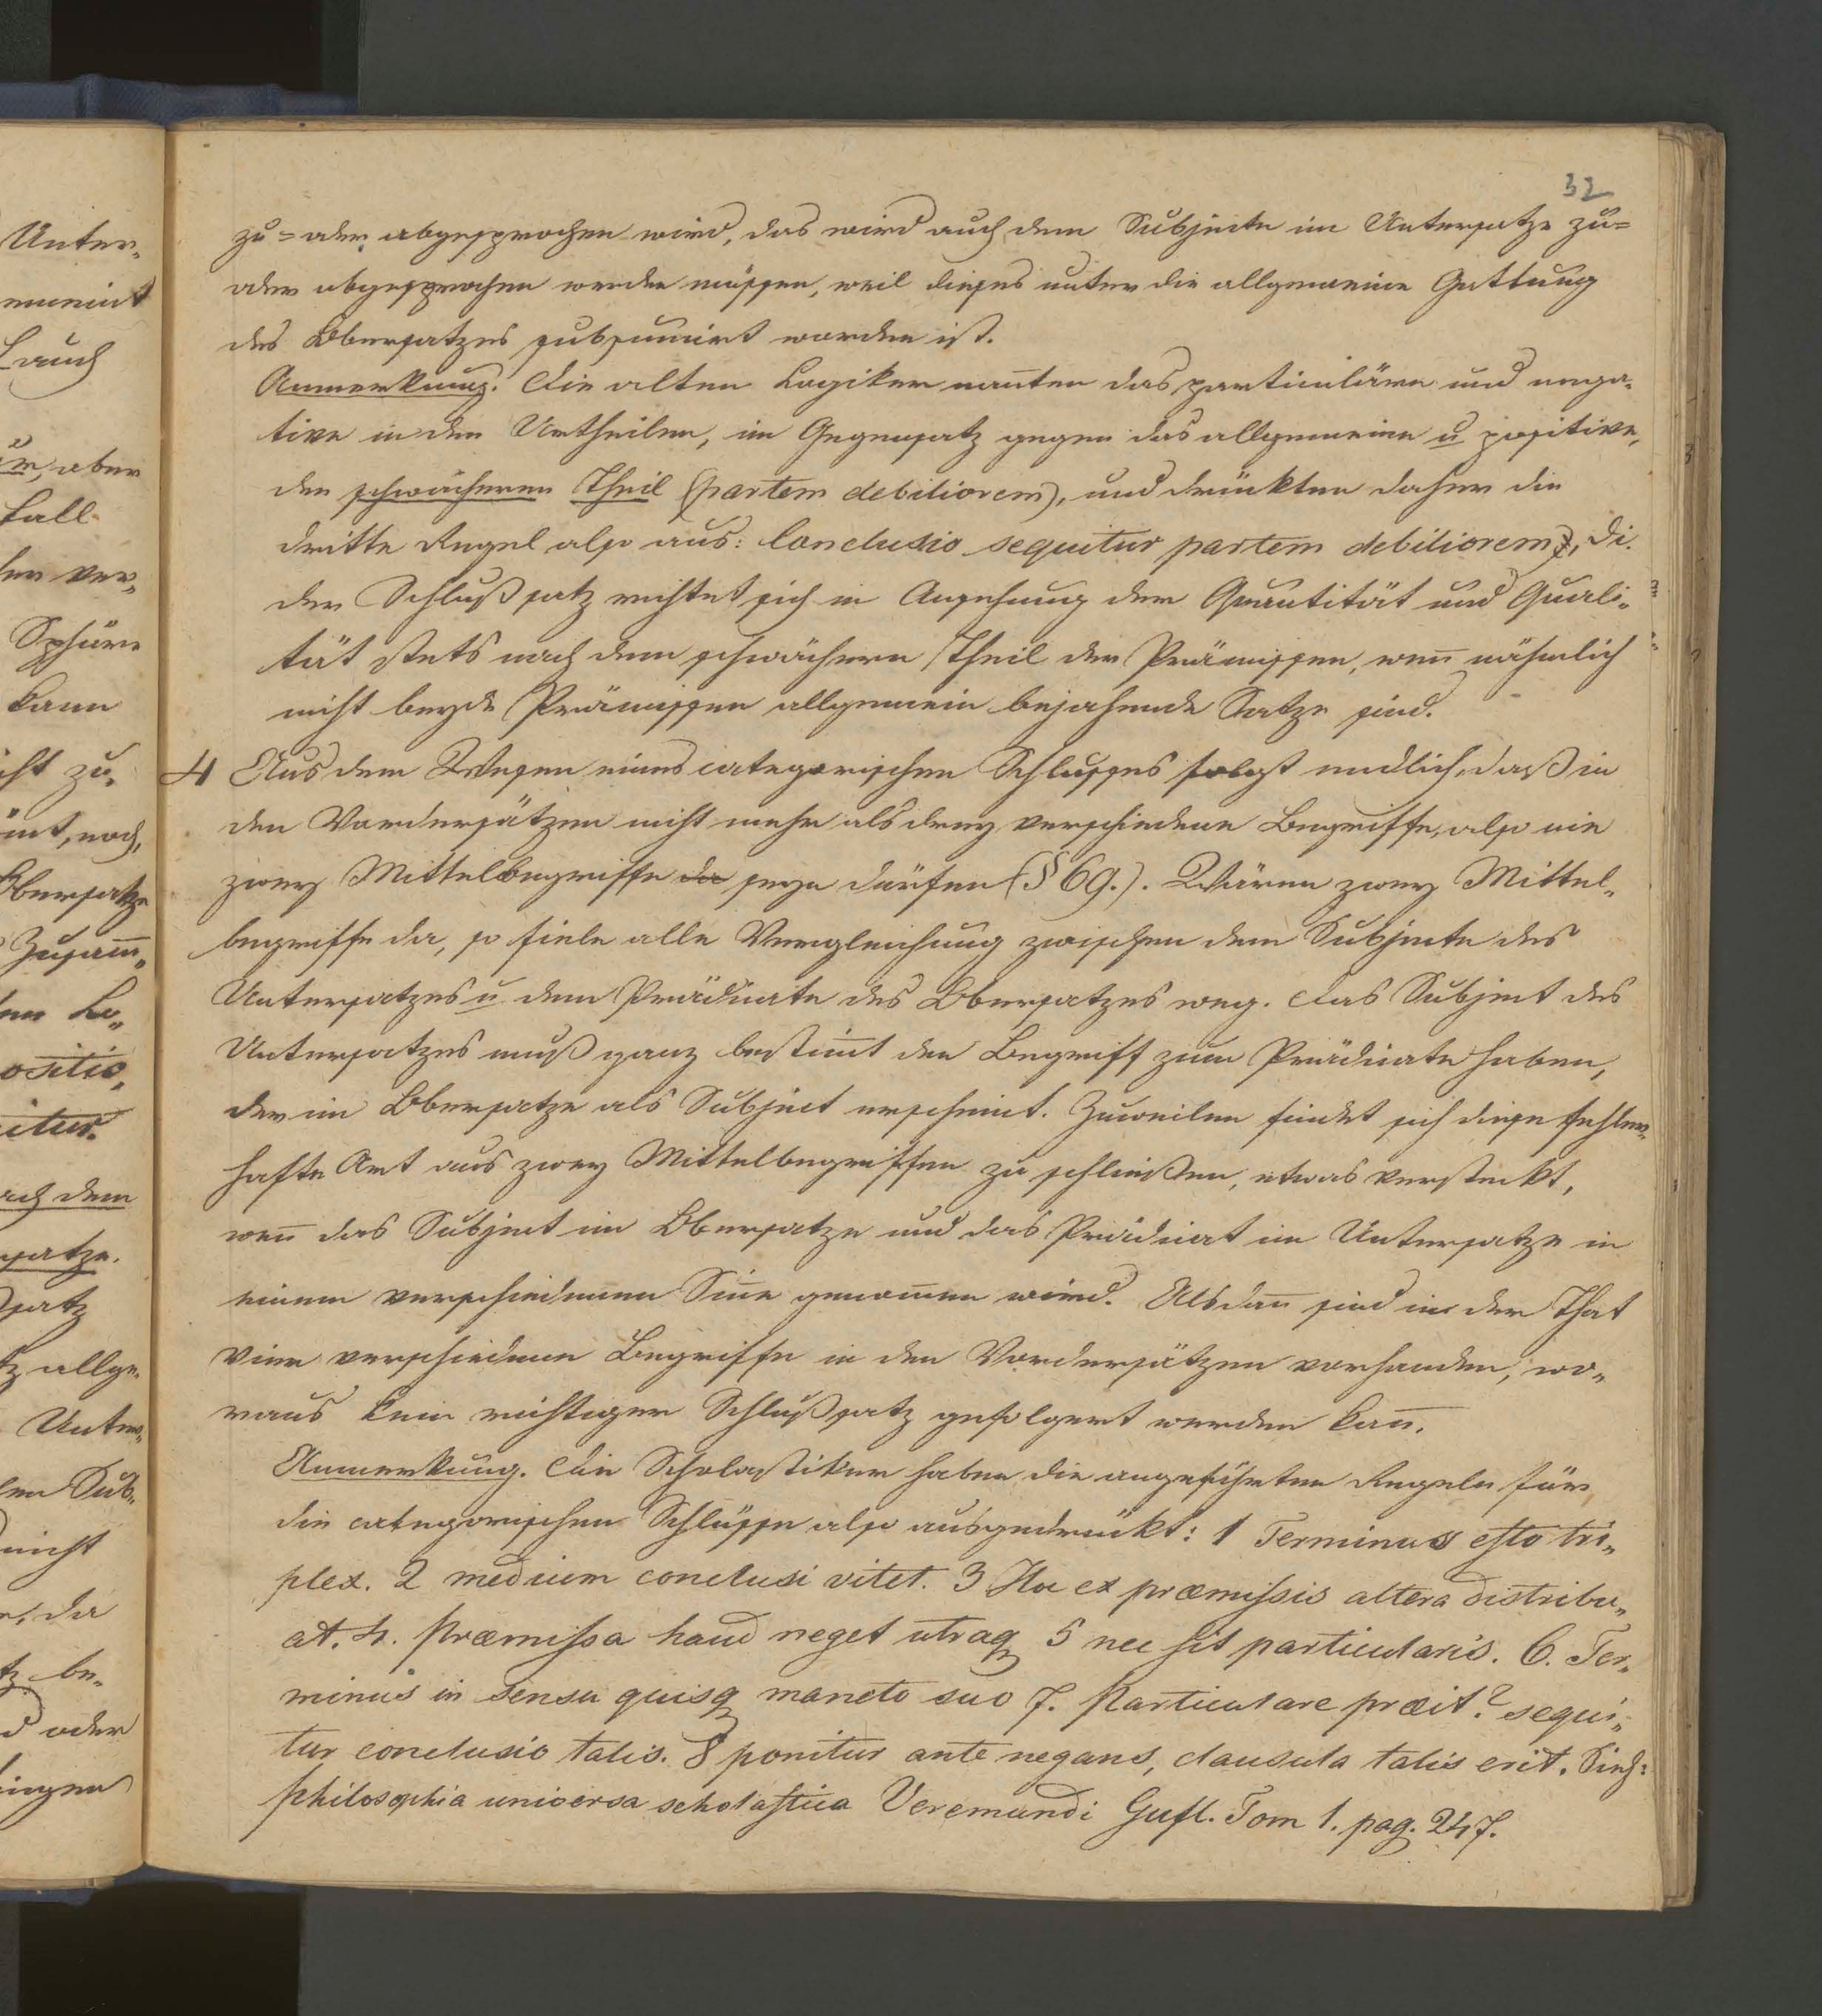 32
Unter„
meint
auch
aber
fall
ver„
Sphäre
kann
zu„
noch,
Obersatze
Zusam̅„
ositio,
itur.
dem
satze.
satz
allge„
Unter„
Sub„
nicht
da
be„
oder
zu= oder abgesprochen wird, das wird auch dem Subjecte im Untersatze zu=
oder abgesprochen werden müssen, weil dieses unter die allgemeine Gattung
des Obersatzes subsumirt worden ist.
Anmerkung. Die alten Logiker nan̅ten das particuläre und nega„
tive in den Urtheilen, im Gegensatz gegen das allgemeine u positive,
den schwächeren Theil (partem debiliorem), und drückten daher die
dritte Regel also aus: Conclusio sequitur partem debiliorem, di.
der Schlußsatz richtet sich in Ansehung der Quantität und Quali„
tät stets nach dem schwächern Theil der Prämissen, wen̅ nähmlich
nicht beyde Prämissen allgemein bejahende Sätze sind.
4 Aus dem Wesen eines categorischen Schlusses folgt endlich, daß in
den Vordersätzen nicht mehr als drey verschiedene Begriffe, also nie
zwey Mittelbegriffe da seyn dürfen (§ 69.). Wären zwey Mittel„
begriffe da, so fiele alle Vergleichung zwischen dem Subjecte des
Untersatzes u dem Prädicate des Obersatzes weg. Das Subject des
Untersatzes muß ganz bestim̅t den Begriff zum Prädicate haben,
der im Obersatze als Subject erscheint. Zuweilen findet sich diese fehler„
hafte Art aus zwey Mittelbegriffen zu schließen, etwas versteckt,
wen̅ das Subject im Obersatze und das Prädicat im Untersatze in
einem verschiedenen Sin̅e genom̅en wird. Alsdan̅ sind in der That
vier verschiedene Begriffe in den Vordersätzen vorhanden, wo„
raus kein richtiger Schlußsatz gefolgert werden kan̅.
Anmerkung. Die Scholastiker haben die angeführten Regeln für
die categorischen Schlüsse also ausgedrückt: 1 Terminus esto tri„
plex. 2 medium conclusi vitet. 3 Hoc ex præmissis altera distribu„
at. 4. Præmissa haud neget utraq 5 nec sit particularis. 6. Ter„
minus in sensu quisq maneto suo 7. Particulare præit? sequi„
tur conclusio talis. 8 ponitur ante negans, clausula talis erit. Sieh:
philosophia universa scholastica Veremundi Gufl. Tom 1. pag. 247.